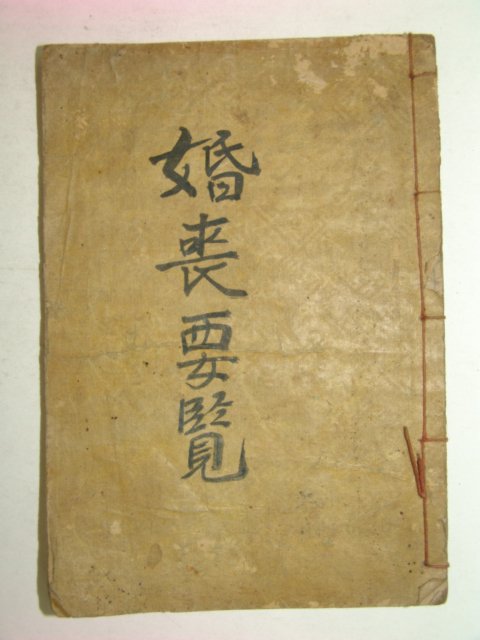 婚喪要覽